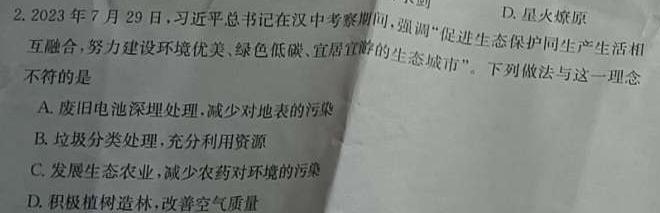 D. 星火燎原
2. 2023 年 7 月 29 日,习近平总书记在汉中考察期间,强调“促进生态保护同生产生活相
互融合,努力建设环境优美、绿色低碳、宜居宜游的生态城市”。下列做法与这一理念
不符的是
A. 废旧电池深埋处理,减少对地表的污染
B. 垃圾分类处理,充分利用资源
C. 发展生态农业,减少农药对环境的污染
D. 积极植树造林,改善空气质量